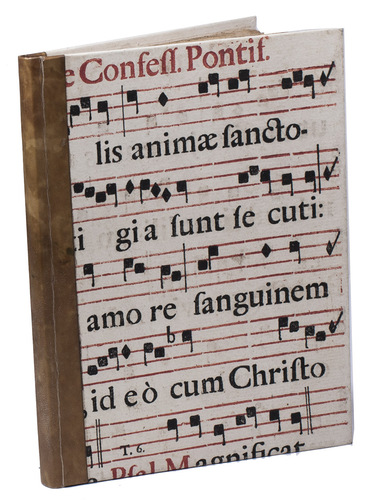 e Confeſſ. Pontif.
lis animæ ſancto-
gia ſunt ſe cuti:
amo re ſanguinem
id eò cum Chriſto
T. 6.
Pſal. Magnificat